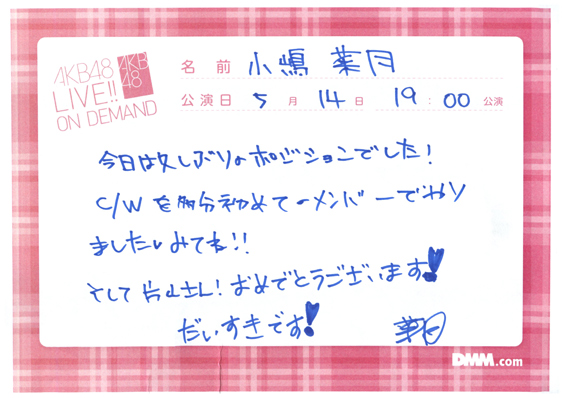 AKB48
LIVE!!
ON DEMAND
AKB
48
名前 小嶋 菜月
公演日 5月 14日 19:00 公演
今日は久しぶりのポジションでした!
C/Wを多分初めてのメンバーでやり
ました みてね!!
そして 片山さん! おめでとうございます!
だいすきです!
菜月
DMM.com